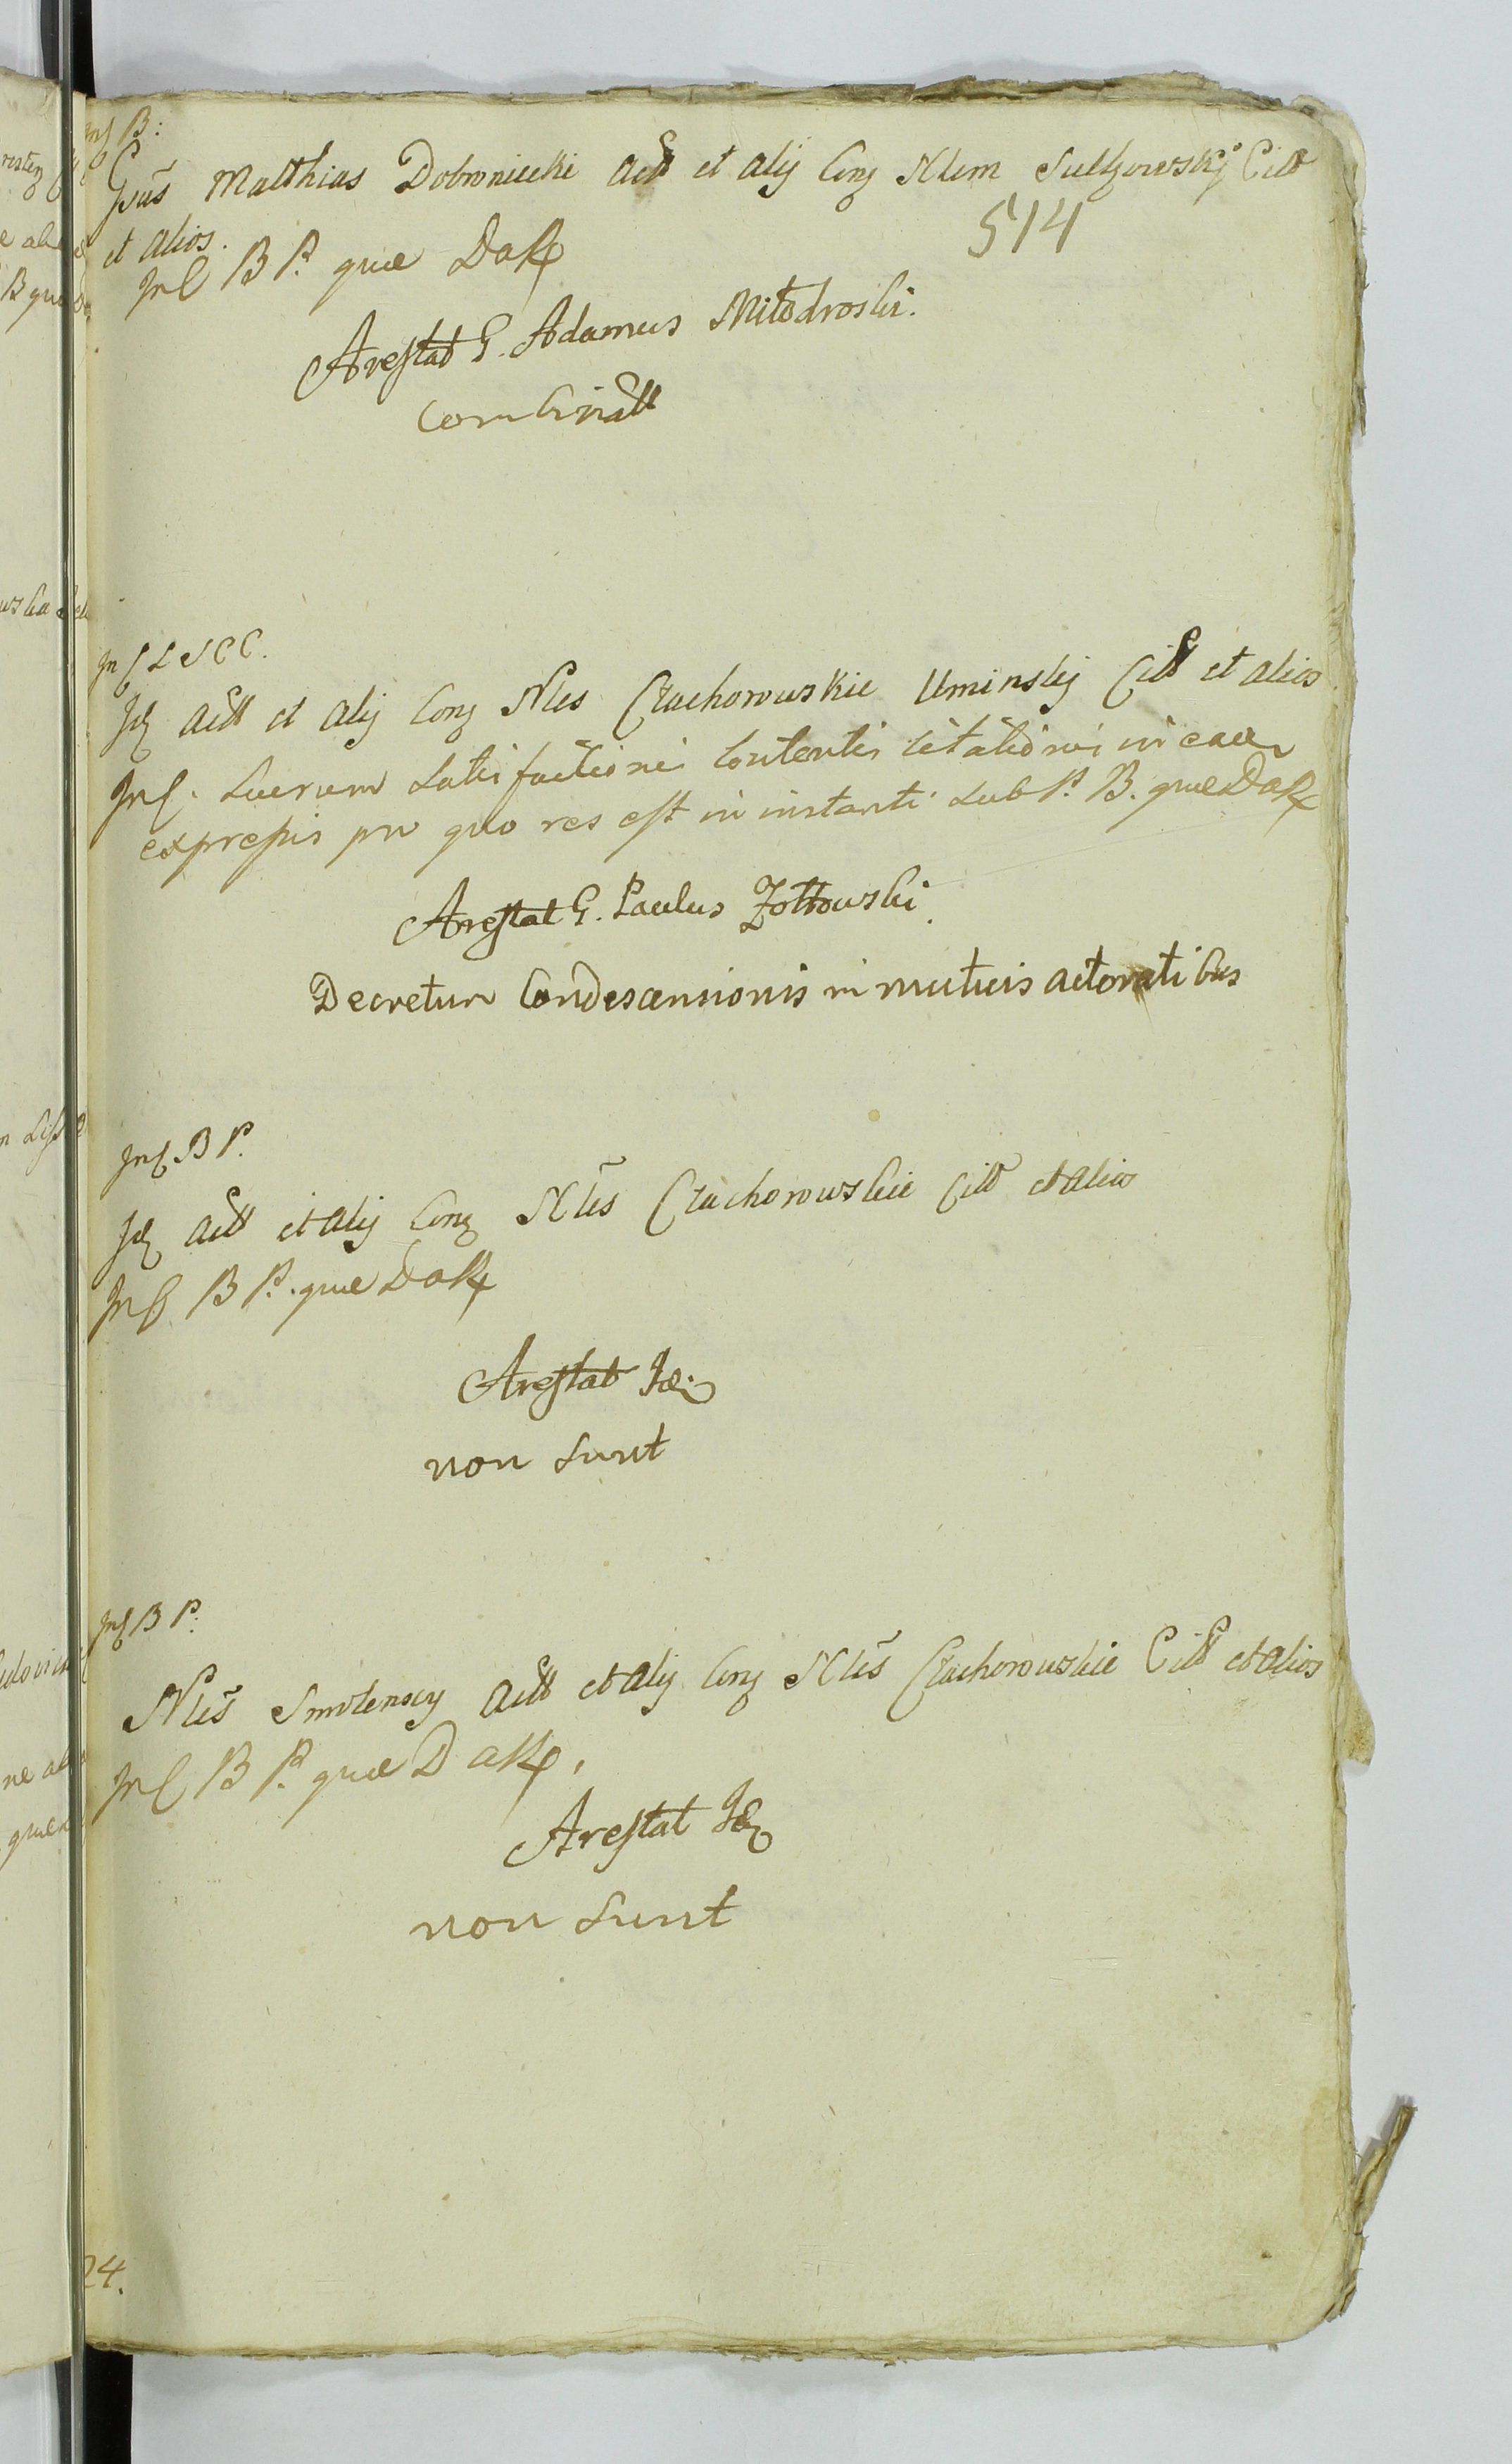 Inſ B:
Gsūs Matthias Dobroniecki Actt et alij Conz Nlem Sultzowskj Citt
514
et alios.
Inſ B P. quæ DaR
Arestat G. Adamus Młodroski.
Combinatt
Inſ L S C C.
Id Actt et alij Conz Nles Czachorowskie Uminskij Citt et alios
Inſ. Suarum Satisfactioni Contentis Citationi in eaa
expressis pro quo res est in instanti Sub P. B. quæ DaR
Arestat G. Paulus Zołtowski
Decretum Condescensionis in mutuis actoratibus
Inſ B P.
Id Actt et alij Conz Nlēs Czachorowskie Citt et alios
Inſ B P. quæ DaR
Arestat Id.
non Sunt
Inſ B P.
Nlēs Smolenscy Actt et alij Conz Nlēs Czachorowskie Citt et alios
Inſ B P. quæ DaR.
Arestat Id
non Sunt
24.